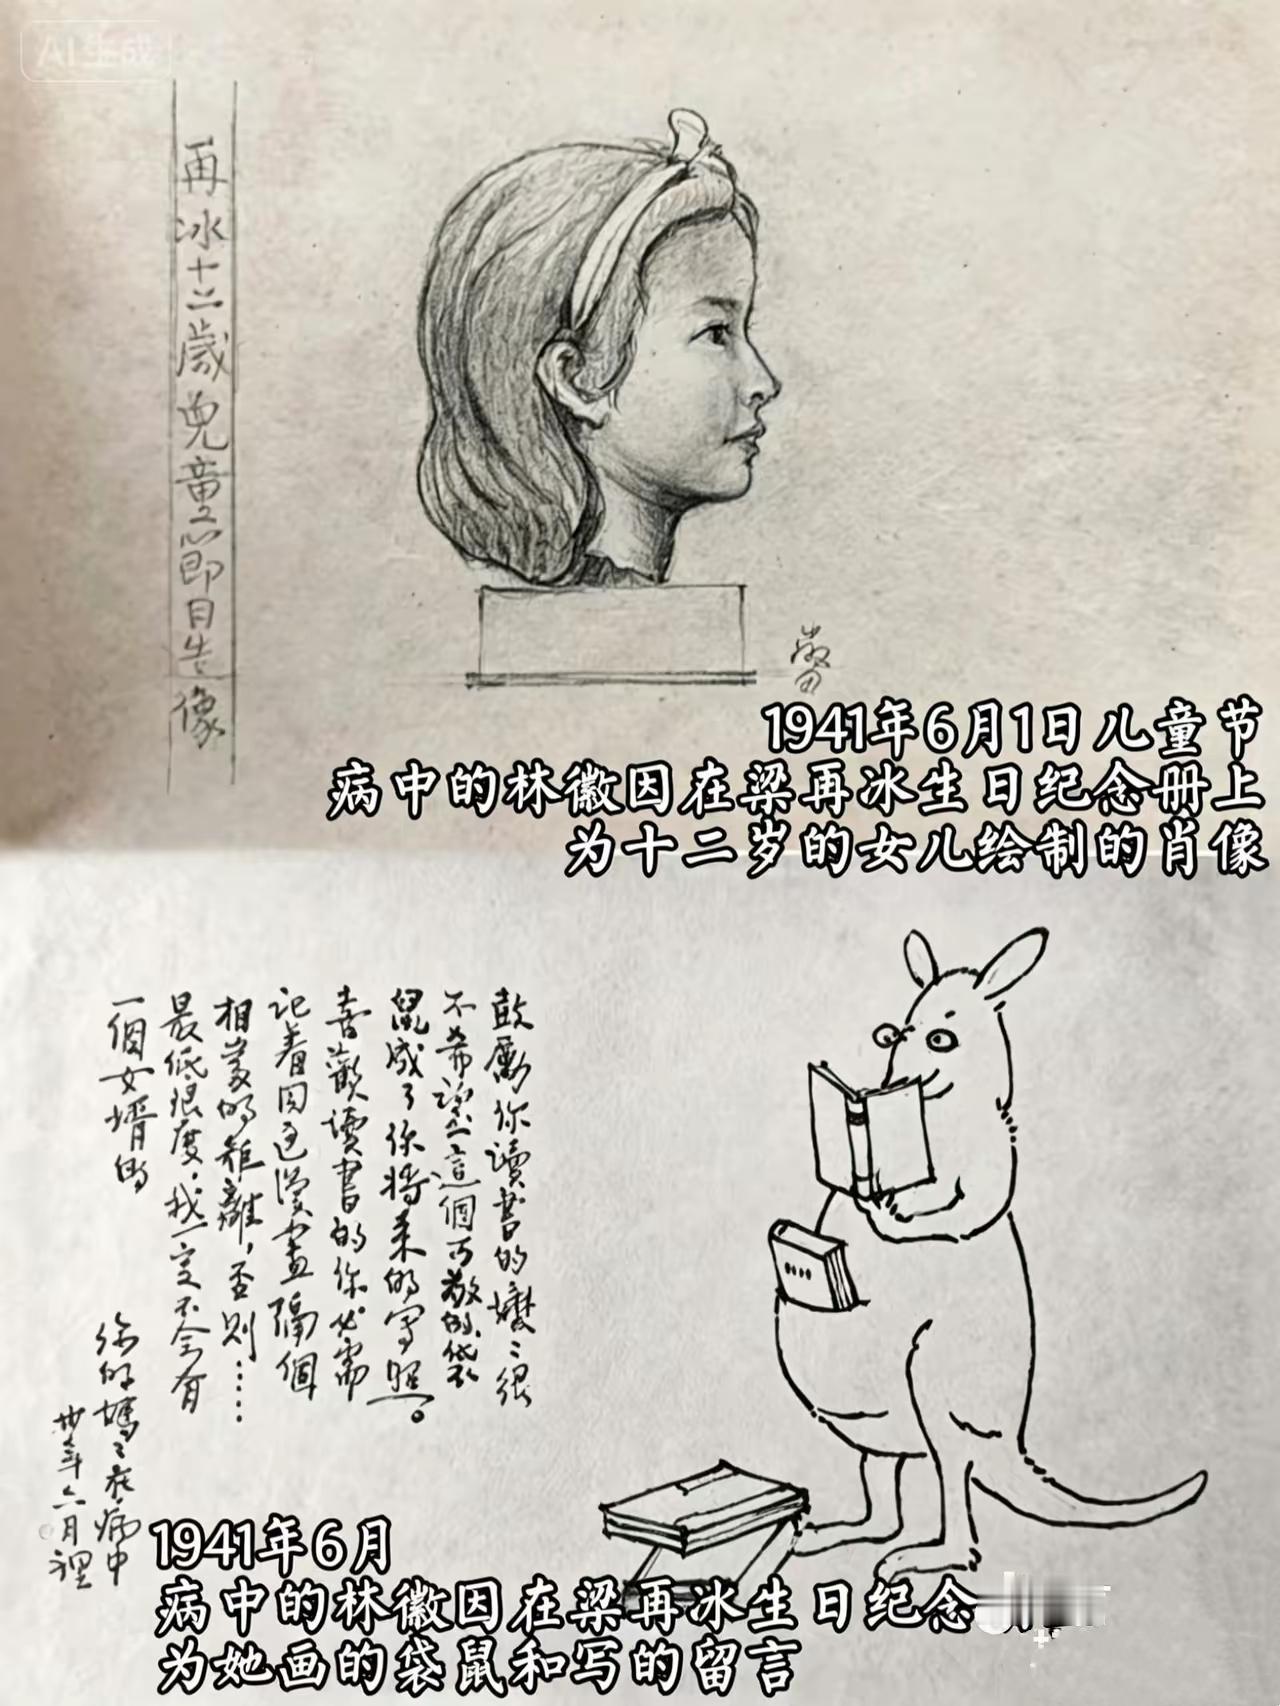 AI生成
再冰十二歲兒童節日告像
1941年6月1日儿童节
病中的林徽因在梁再冰生日纪念册上
为十二岁的女儿绘制的肖像
鼓勵你讀書的嬤嬤很
不希望這個可敬的袋
鼠成了你將来的写照。
喜歡讀書的你必需
記着同這漫畫隔個
相當的距離，否則……
最低限度，我一定不会有
一個女婿的
你的媽媽在病中
卅年六月裡
1941年6月
病中的林徽因在梁再冰生日纪念
为她画的袋鼠和写的留言